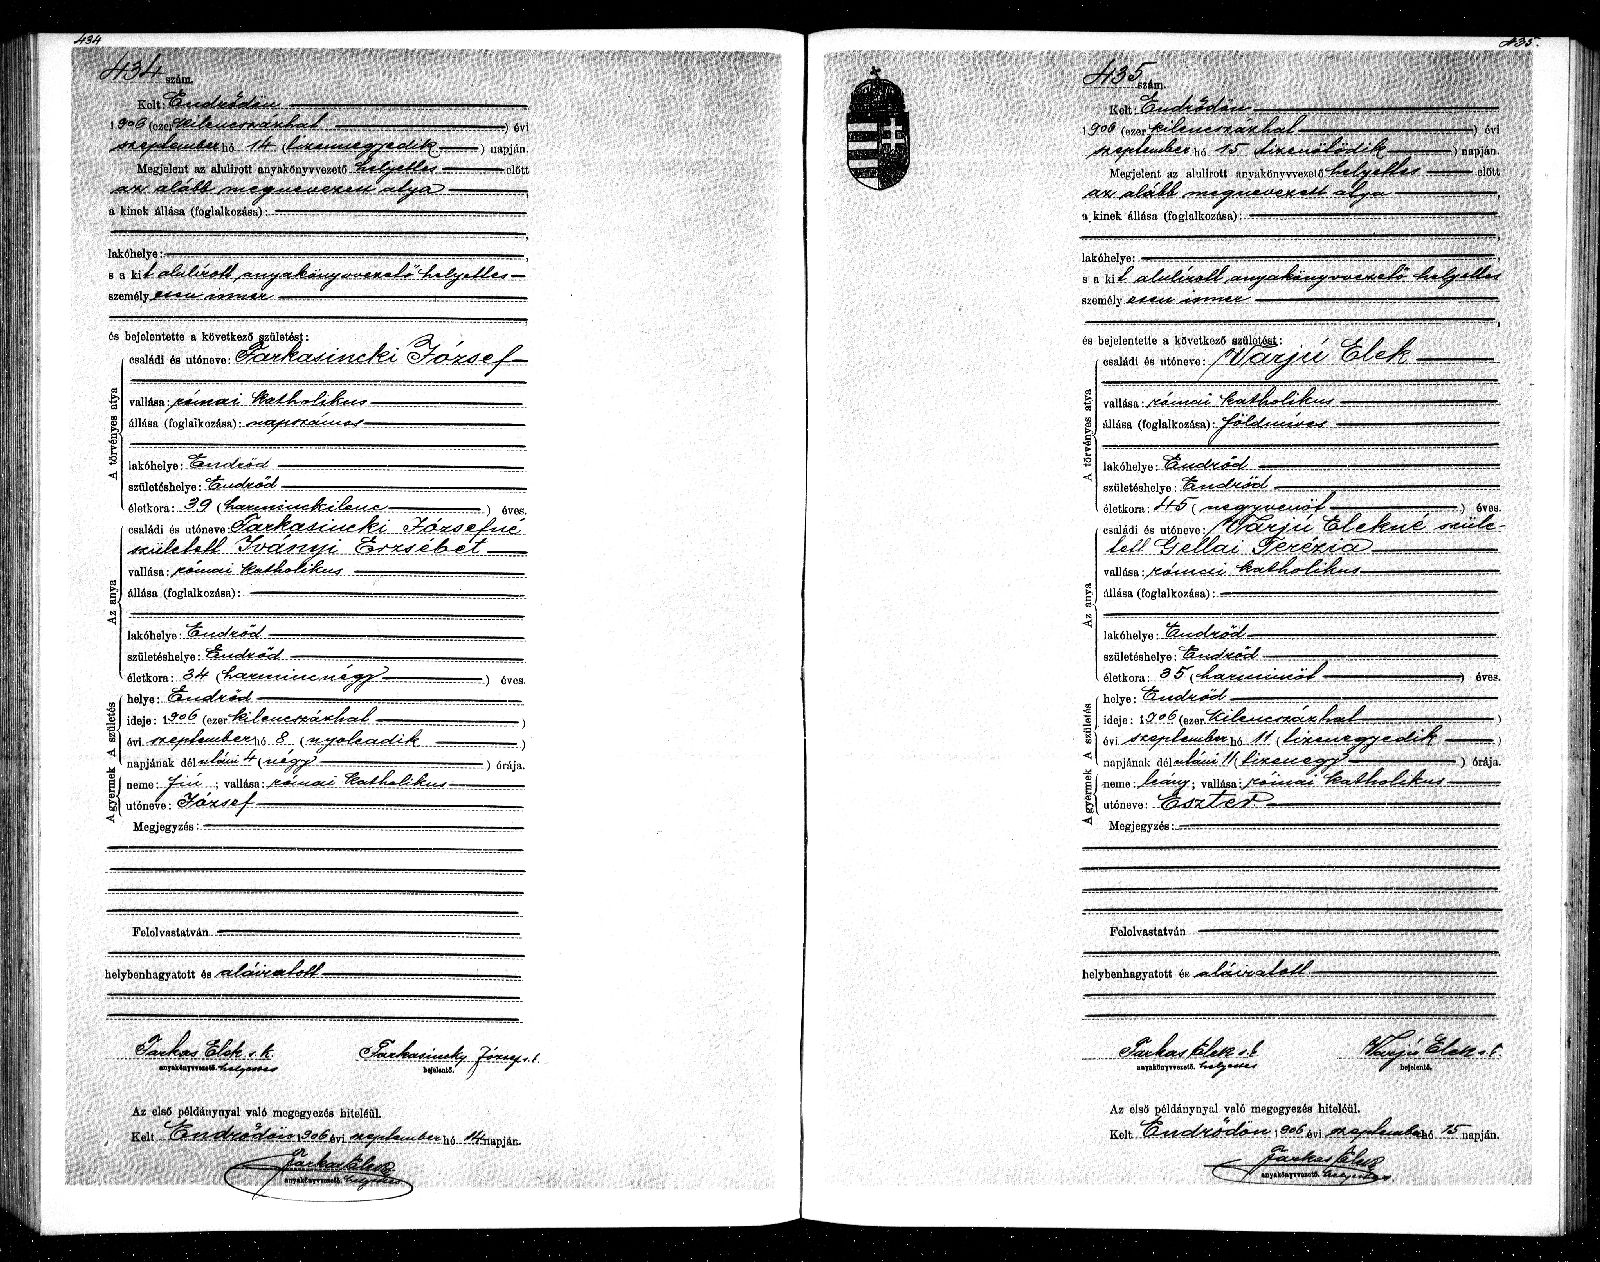 434
434 szám.
Kelt: Endrődön
1906 (ezer kilenczszázhat ) évi
szeptember hó 14 (tizennegyedik ) napján.
Megjelent az alulirott anyakönyvvezető helyettes előtt
az alább megnevezett atya
a kinek állása (foglalkozása):
lakóhelye:
s a kit alulírott anyakönyvvezető helyettes
személyesen ismer
és bejelentette a következő születést:
A törvényes atya
családi és utóneve: Farkasincki József
vallása: római katholikus
állása (foglalkozása): napszámos
lakóhelye: Endrőd
születéshelye: Endrőd
életkora: 39 (harminckilenc ) éves.
Az anya
családi és utóneve: Farkasincki Józsefné
született Iványi Erzsébet
vallása: római katholikus
állása (foglalkozása):
lakóhelye: Endrőd
születéshelye: Endrőd
életkora: 34 (harmincnégy ) éves.
A születés
helye: Endrőd
ideje: 1906 (ezer kilenczszázhat )
évi szeptember hó 8 (nyolcadik )
napjának délutáni 4 (négy ) órája.
A gyermek
neme: fiú ; vallása: római katholikus
utóneve: József
Megjegyzés:
Felolvastatván
helybenhagyatott és aláiratott
Farkas Elek s. k.
anyakönyvvezető. helyettes
Farkasinszky József s. k.
bejelentő.
Az első példánynyal való megegyezés hiteléül.
Kelt Endrődön 1906 évi szeptember hó 14 napján.
Farkas Elek
anyakönyvvezető. helyettes
435.
435 szám.
Kelt: Endrődön
1906 (ezer kilenczszázhat ) évi
szeptember hó 15 tizenötödik ) napján.
Megjelent az alulirott anyakönyvvezető helyettes előtt
az alább megnevezett atya
a kinek állása (foglalkozása):
lakóhelye:
s a kit alulírott anyakönyvvezető helyettes
személyesen ismer
és bejelentette a következő születést:
A törvényes atya
családi és utóneve: Varjú Elek
vallása: római katholikus
állása (foglalkozása): földmíves
lakóhelye: Endrőd
születéshelye: Endrőd
életkora: 45 (negyvenöt ) éves.
Az anya
családi és utóneve: Varjú Elekné szüle-
tett Gellai Terézia
vallása: római katholikus
állása (foglalkozása):
lakóhelye: Endrőd
születéshelye: Endrőd
életkora: 35 (harmincöt ) éves.
A születés
helye: Endrőd
ideje: 1906 (ezer kilenczszázhat )
évi szeptember hó 11 (tizenegyedik )
napjának délutáni 11 (tizenegy ) órája.
A gyermek
neme: leány; vallása: római katholikus
utóneve: Eszter
Megjegyzés:
Felolvastatván
helybenhagyatott és aláiratott
Farkas Elek s. k.
anyakönyvvezető. helyettes
Varjú Elek s. k.
bejelentő.
Az első példánynyal való megegyezés hiteléül.
Kelt Endrődön 1906 évi szeptember hó 15 napján.
Farkas Elek
anyakönyvvezető. helyettes